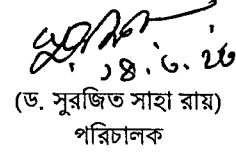 ১৪.৩.২৩
(ড. সুরজিত সাহা রায়)
পরিচালক